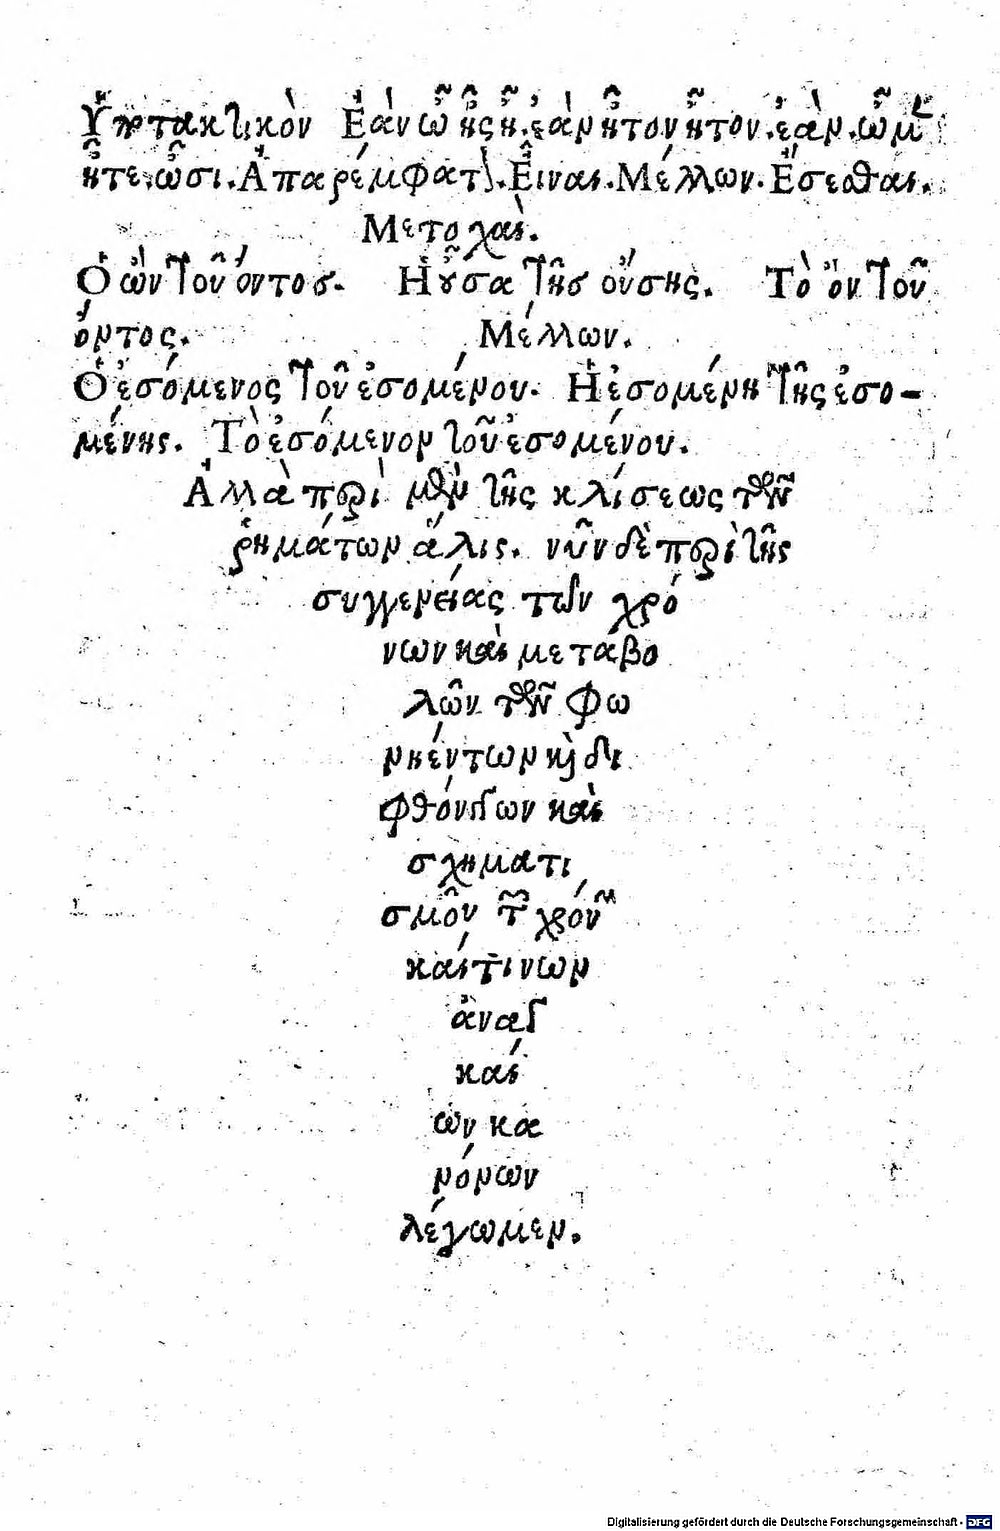 Ὑποτακτικὸν Ἐὰν ὦ ᾖς ᾖ. ἐὰν ἦτον ἦτον. ἐὰν. ὦμεν
ἦτε. ὦσι. Ἀπαρέμφατον. Εἶναι. Μέλλων. Ἔσεσθαι.
Μετοχαὶ.
Ὁ ὢν τοῦ ὄντος. Ἡ οὖσα τῆς οὔσης. Τὸ ὂν τοῦ
ὄντος. Μέλλων.
Ὁ ἐσόμενος τοῦ ἐσομένου. Ἡ ἐσομένη τῆς ἐσο-
μένης. Τὸ ἐσόμενον τοῦ ἐσομένου.
Ἀλλὰ περὶ μὲν τῆς κλίσεως τῶν
ῥημάτων ἅλις. νῦν δὲ περὶ τῆς
συγγενείας τῶν χρό
νων καὶ μεταβο
λῶν τῶν φω
νηέντων καὶ δι
φθόγγων καὶ
σχηματι
σμῶν τῶν χρόνων
καί τινων
ἀναγ
καί
ων κα
νόνων
λέγωμεν.
Digitalisierung gefördert durch die Deutsche Forschungsgemeinschaft - DFG